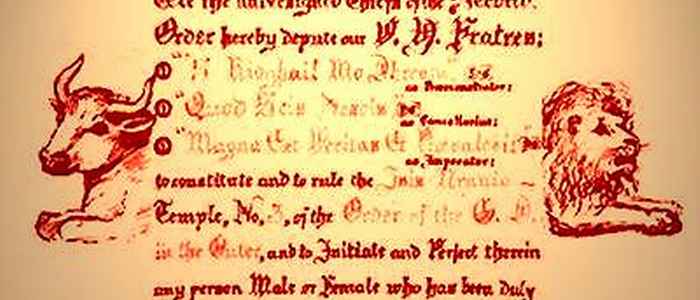 We the undersigned Chiefs of the Second
Order hereby depute our V. H. Fratres:
"'S Rioghail Mo Dhream"
as Praemonstrator:
"Quod Scis Nescis"
as Cancellarius:
"Magna Est Veritas Et Praevalebit"
as Imperator:
to constitute and to rule the Isis Urania -
Temple, No. 3, of the Order of the G. D.
in the Outer, and to Initiate and Perfect therein
any person Male or Female who has been duly